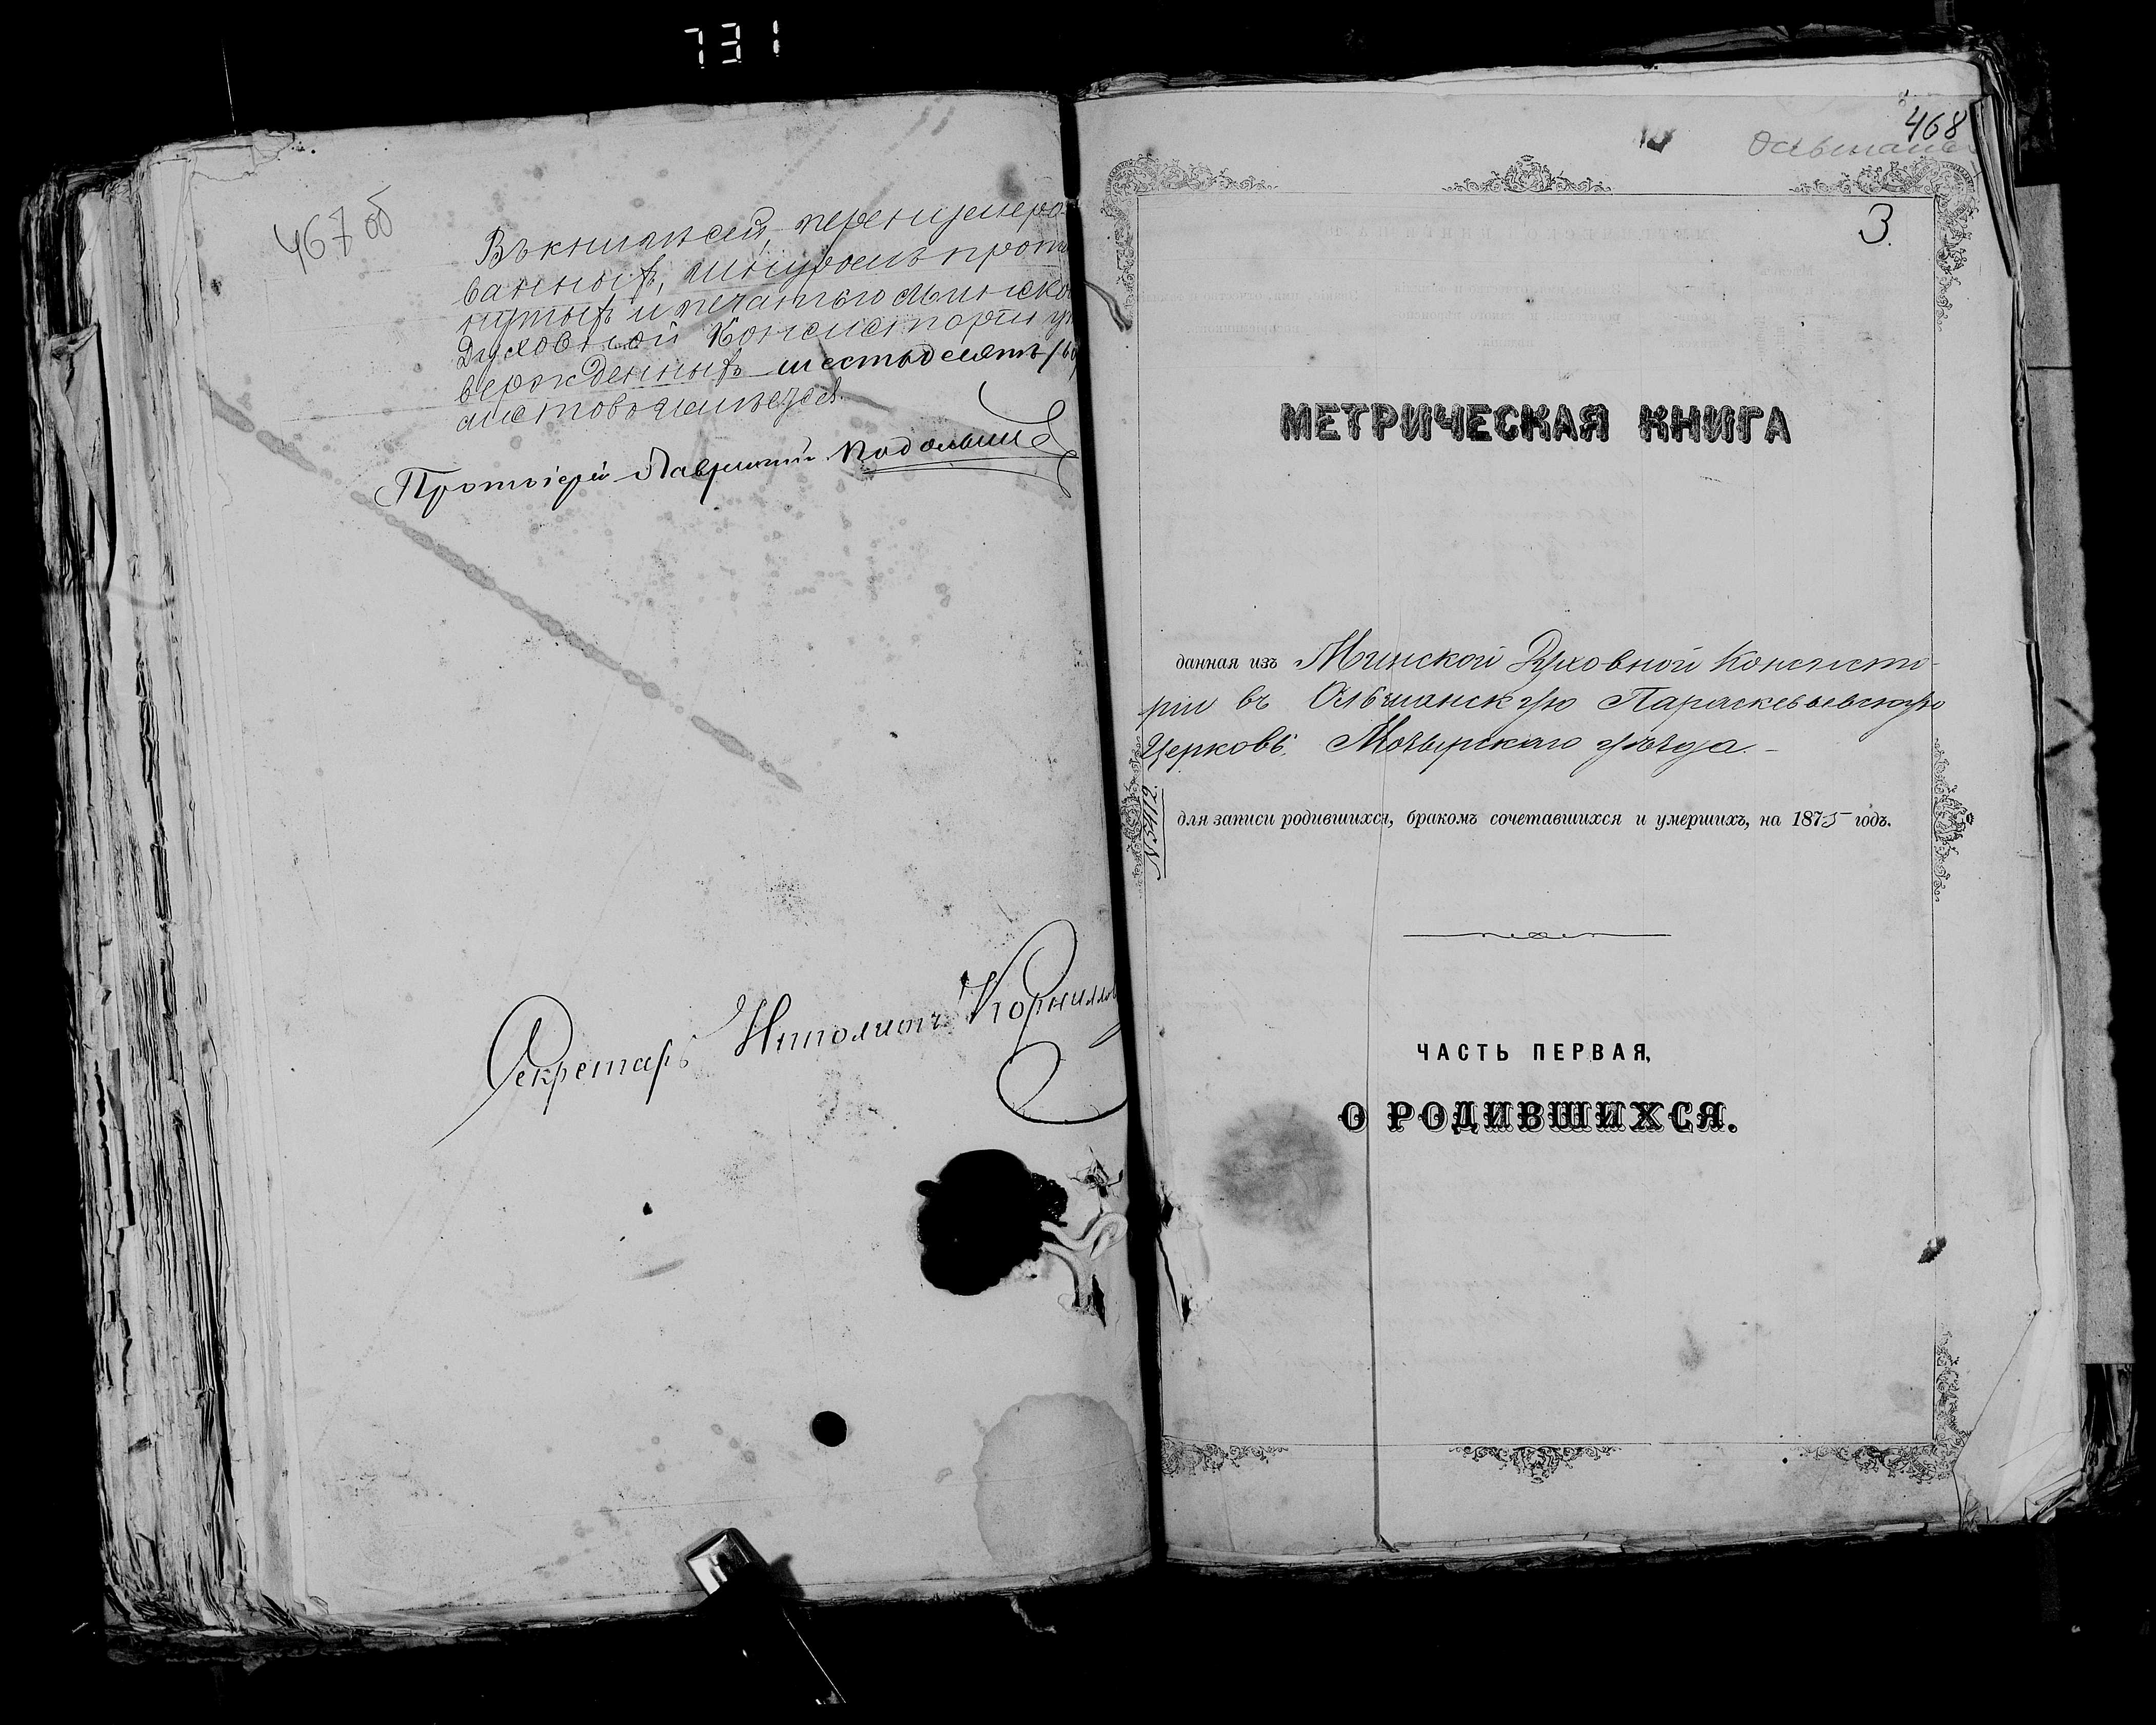 731
467 об
Въ книгѣ сей, перенумеро-
ванныхъ, шнуромъ протя
нутыхъ и печатью Минско
Духовной Консисторіи ут
вержденныхъ шестьдесятъ /60/
листовъ имѣется.
Протоіерей Лаврентій Подольскі
Секретарь Ипполитъ Корнилло
468
3.
МЕТРИЧЕСКАЯ КНИГА
данная изъ Минской Духовной Консисто-
ріи въ Ольшанскую Параскевіевскую
Церковь Мозырскаго уѣзда.
№ 5412.
для записи родившихся, бракомъ сочетавшихся и умершихъ, на 1875 годъ.
ЧАСТЬ ПЕРВАЯ,
О РОДИВШИХСЯ.